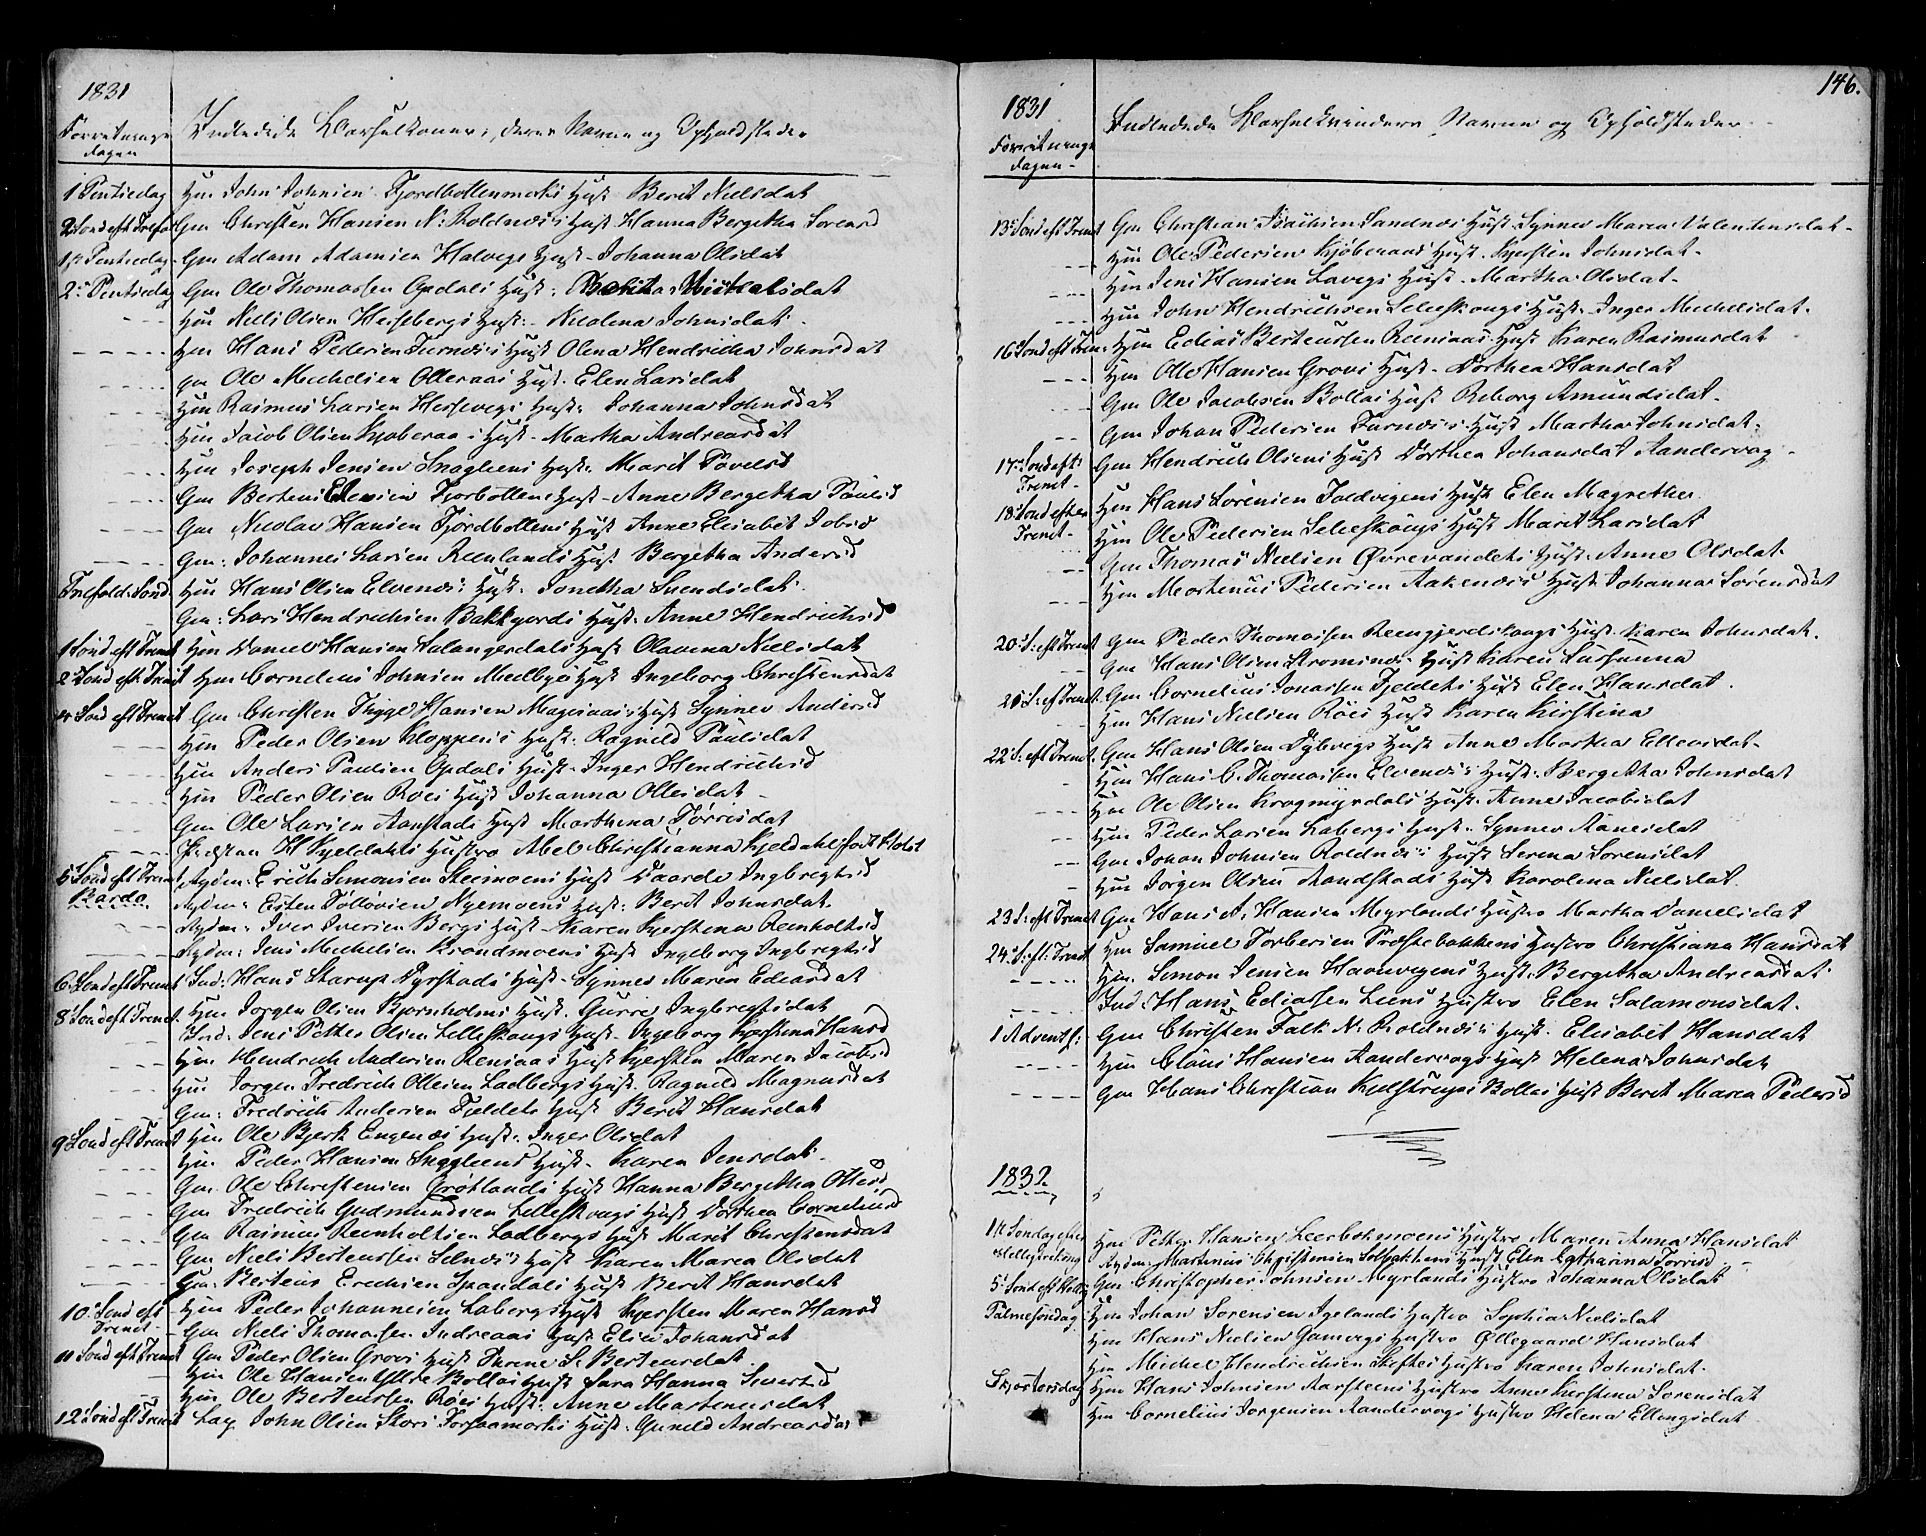 1831
Forretnings
dagen
Indledede Barselkoner, deres Navne og Opholdsteder
1 Pintsedag Hm John Johnsen Fjordbottenmarks Hust Berit Nielsdat
2 Sond eft Trefol Gm Christen Hansen N: Roldnæs's Hust Hanna Bergetha Sorensd
1ste Pintsedag Gm Adam Adamsen Halvegs Hust Johanna Olsdat
2den Pintsedag Gm Ole Thomassen Opdals Hust: Mickalsdat
- - - Hm Niels Olsen Heisebergs Hust:- Nicolena Johnsdat
- - - - - Hm Hans Pedersen Furnæs's Hust Olena Hendricka Johnsdat
- - - - gm Ole Mechelsen Olleraas Hust. Elen Larsdat
- - - - Hm Rasmus Larsen Hessevegs Hust: Johanna Johnsdat
- - - - Hm Jacob Olsen Kjoberaas Hust- Martha Andreasdat
- - - - Hm Joseph Jensen Snaglens Hust: Marit Povelsd
- - - - Gm Bertens Edensen Fjorbottens Hust- Anne Bergetha Paulsd
- - - - Gm Nicolai Hansen Fjordbottens Hust Anne Elisabet Jobsd
- - - - Gm: Johannes Larsen Reenlands Hust Bergetha Andersd
Trefold: Sond: Hm Hans Olsen Elvenæs: Hust. Jonetha Svendsdat
Gm: Lars Hendrichsen Bakkejords Hust: Anne Hendrichsd
1 Sond eft Trenit Hm Daniel Hansen Salangsdals Hust Olavena Nielsdat
2 Sond eft Trenit Hm Cornelius Johnsen Medbyes Hust Ingeborg Christensdat
4 Sond eft Trenit Gm Christen Trygge Hansen Hust Synnev Andersd
- - - Hm Peder Olsen Kloppens Hust: Ragnild Paulsdat
- - - Hm Anders Paulsen Opdals Hust- Inger Hendrichsd
- - - Hm Peder Olsen Roes Hust Johanna Ollesdat
- - - Gm Ole Larsen Aanstads Hust Marthina Torresdat
- - - Præsten H Kjeldahls Hustro Abel Christianna Kjeldahl fodt Holst
5 Sond eft Trenit Rydm: Erich Simonsen Steenmoens Hust Vaarde Ingbregtsd
Bardo Rydm: Esten Tollovsen Nyemoens Hust: Berit Johnsdat
- - - Rydm: Iver Iversen Bergs Hust- Karen Kjerstena Reenholtsd
- - - Rydm: Jens Mechelsen Brandmoens Hust Ingeborg Ingbregtsd
6 Sond eft Trenit Ind: Hans Starup Dyrstads Hust- Synnev Maria Ediasdat
8 Sond eft Trenit Hm Jorgen Olsen Bjornholms Hust. Gurre Ingbregtsdat
- - - Ind. Jens Petter Olsen Lilleskougs Hust- Ingeborg Kjerstina Hansd
- - - Hm Hendrich Andersen Rensaas Hust Kjersten Maren Jacobsd
- - - Hm Jorgen Fredrich Ollesen Ladbergs Hust. Ragnild Magnusdat
- - - Gm: Fredrich Andersen Fjeldets Hust Berit Hansdat
9 Sond eft Trenit Hm Ole Bjerk Engenæs Hust. Inger Olsdat
- - - Hm Peder Hansen Hust. Karen Jensdat
- - - Gm Ole Christensen Grotlands Hust Hanna Bergetha Ottesd
- - - Gm Fredrich Gudmundsen Lilleskougs Hust Dorthea Corneliusd
- - - Gm Rasmus Reenholtsen Ladbergs Hust Marit Christensdat
- - - Gm Niels Bertenssen Selnæs's Hust Karen Marea Olsdat
- - - Gm: Bertens Erechsen Spandals Hust Berit Hansdat
10 Sond eft Trenit- Hm Peder Johannesen Labergs Hust Kjersten Maren Hansd
Gm Niels Thomassen Indreaas Hust Elses Johansdat
11 Sond eft Trenit Gm Peder Olsen Grovs Hust Thrine S. Bertensdat
- Hm Ole Hansen Yttre Bollas Hust Sara Hanna Sivertsd
- Hm Ole Bertenssen Roes Hust: Anne Martenusdat
12 Sond eft Trenit Lap John Olsen Stors Forsaamarks Hust. Gunild Andreasdat
146.
1831
Forretnings
dagen-
Indledede Barselkvinders Navne og Opholdsteder
13 Sond eft Trenit Gm Christian Isachsen Sandnæs Hust. Synnev Marea Valentensdat-
- - - Hm Ole Pedersen Kjoberaas Hust. Kjersten Johnsdat-
- - - Hm Jens Hansen Lavegs Hust. Martha Olsdat-
- - - Hm John Hendrichsen Lilleskougs Hust. Inger Mechelsdat.
16 Sond eft Tren: Hm Edias Bertenssen Reensaas Hust Karen Rasmusdat
- - - Hm Olle Hansen Grovs Hust- Dorthea Hansdat
- - - Gm Ole Jacobsen Bollas Hust Reborg Amundsdat-
- - Gm Johan Pedersen Furnæs's Hust Martha Johnsdat-
17 Sond eft Trenit- Gm Hendrich Olsens Hust Dorthea Johansdat Aandervag-
18 Sond efter Trenit- Hm Hans Sorensen Foldvigens Hust Elen Magrethe
Hm Ole Pedersen Lilleskougs Hust Marit Larsdat
- - - Gm Thomas Nielsen Øvrevandets Hust. Anne Olsdat-
- - - Hm Mortenus Pedersen Aakenæs's Hust Johanna Sorensdat
20 S: eft Trenit Gm Peder Thomassen Reengjerdskougs Hust. Karen Johnsdat.
- - Gm Hans Olsen Stromsnæs- Hust Karen Susanna
21 S: eft Trenit. Gm Cornelius Jonassen Fjeldets Hust Elen Hansdat.
- - Hm Hans Nielsen Roes Hust Karen Kirstina
22 S: eft Trenit. Gm Hans Olsen Dybvegs Hust Anne Martha Ellevsdat-
- Hm Hans C. Thomassen Elvenæs's Hust. Bergetha Johnsdat
- - Hm Ole Olsen Krogmyrdals Hust. Anne Jacobsdat
- - Hm Peder Larsen Labergs Hust. Synnev Aanesdat
- - - Gm Johan Johnsen Roldnæs's Hust Serena Sorensdat
- Hm Jorgen Olsen Aandstads Hust Karolena Nielsdat.
23 S: eft Trenit Gm Hans A. Hansen Myrlands Hustro Martha Danielsdat
24 S: eft: Trenit Hm Samuel Torbersen Præstebakkens Hustro Christiana Hansdat
- - - - Hm. Simon Jensen Havnvegens Hust. Bergetha Andreasdat-
- - - - Ind: Hans Ediassen Liens Hustro Elen Salamonsdat.
1 Advents s: Gm Christen Falk N: Roldnæs's Hust. Elisabet Hansdat
- - - - Hm Claus Hansen Aandervags Hust Helena Johnsdat
- - - - Gm Hans Christian Kulstrups Bollas Hust Berit Marea Pedersd
1832
1ste Søndag efter Hellgtrekong Hm Petter Hansen Leerbakmoens Hustro Maren Anna Hansdat
Rydm: Martinus Christensen Solbakkens Hust Elen Catharina Torresd
5 Sond eft Hellig Gm Christopher Johnsen Myrlands Hustro Johanna Olsdat
Palmesondag Hm Johan Sorensen Agelands Hustro Sophia Nielsdat
Hm Hans Nielsen Gamvegs Hustro Øllegaard Hansdat
Hm Michel Hendrichsen Skeftes Hustro Karen Johnsdat-
Skjertorsdag Hm Hans Johnsen Aarsteens Hustro Anne Kjerstina Sorensdat
Hm Cornelius Jorgensen Aandervags Hustro Helena Ellengsdat